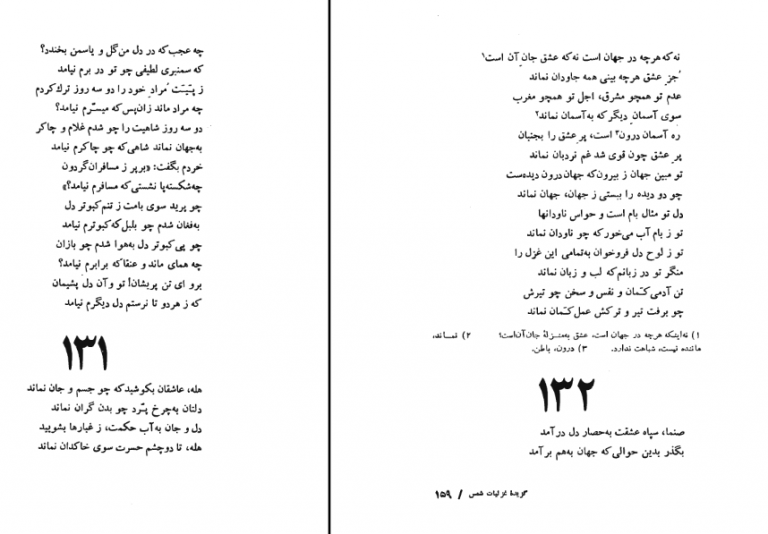 چه عجب که در دل من گل و یاسمن بخندد؟
که سمنبری لطیفی چو تو در برم نیامد
ز پئیتت مراد خود را دو سه روز ترك کردم
چه مراد ماند زان پس که میسّرم نیامد؟
دو سه روز شاهیت را چو شدم غلام و چاکر
به‌جهان نماند شاهی که چو چاکرم نیامد
خردم بگفت: «برپر ز مسافران گردون
چه شکسته‌پا نشستی که مسافرم نیامد؟»
چو پرید سوی بامت ز تنم کبوتر دل
به‌فغان شدم چو بلبل که کبوترم نیامد
چو پی کبوتر دل به‌هوا شدم چو بازان
چه همای ماند و عنقا که برابرم نیامد؟
برو ای تن پریشان! تو وآن دل پشیمان
که ز هردو تا نرستم دل دیگرم نیامد
۱۳۱
هله، عاشقان بکوشید که چو جسم و جان نماند
دلتان به‌چرخ پَرّد چو بدن گران نماند
دل و جان به‌آب حکمت، ز غبارها بشویید
هله، تا دوچشم حسرت سوی خاکدان نماند
نه که هرچه در جهان است نه که عشق جانِ آن است۱
جُز عشق هرچه بینی همه جاودان نماند
عدم تو همچو مشرق، اجل تو همچو مغرب
سوی آسمان دیگر که به‌آسمان نماند۲
ره آسمان درون۳ است، پرِ عشق را بجنبان
پرِ عشق چون قوی شد غم نردبان نماند
تو مبین جهان ز بیرون که جهان درون دیده‌ست
چو دو دیده را ببستی ز جهان، جهان نماند
دل تو مثال بام است و حواس ناودانها
تو ز بام آب می‌خور که چو ناودان نماند
تو ز لوح دل فروخوان به‌تمامی این غزل را
منگر تو در زبانم که لب و زبان نماند
تن آدمی کمان و نفس و سخن چو تیرش
چو برفت تیر و ترکش عمل کمان نماند
۱) نه‌اینکه هرچه در جهان است، عشق به‌منزلهٔ جان آن است؟ ۲) نمـاند،
ماننده نیست، شباهت ندارد. ۳) درون، باطن.
۱۳۲
صنما، سپاه عشقت به‌حصار دل درآمد
بگذر بدین حوالی که جهان به‌هم برآمد
گزیدهٔ غزلیات شمس / ۱۵۹